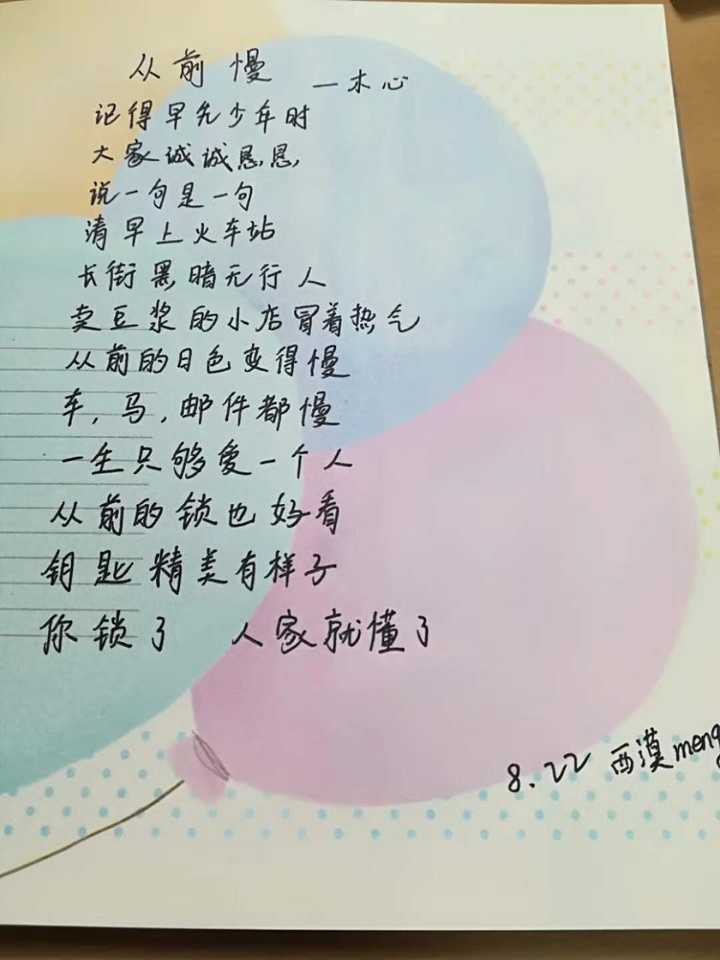 从前慢
—木心
记得早先少年时
大家诚诚恳恳
说一句是一句
清早上火车站
长街黑暗无行人
卖豆浆的小店冒着热气
从前的日色变得慢
车,马,邮件都慢
一生只够爱一个人
从前的锁也好看
钥匙精美有样子
你锁了 人家就懂了
8.22 西漠meng